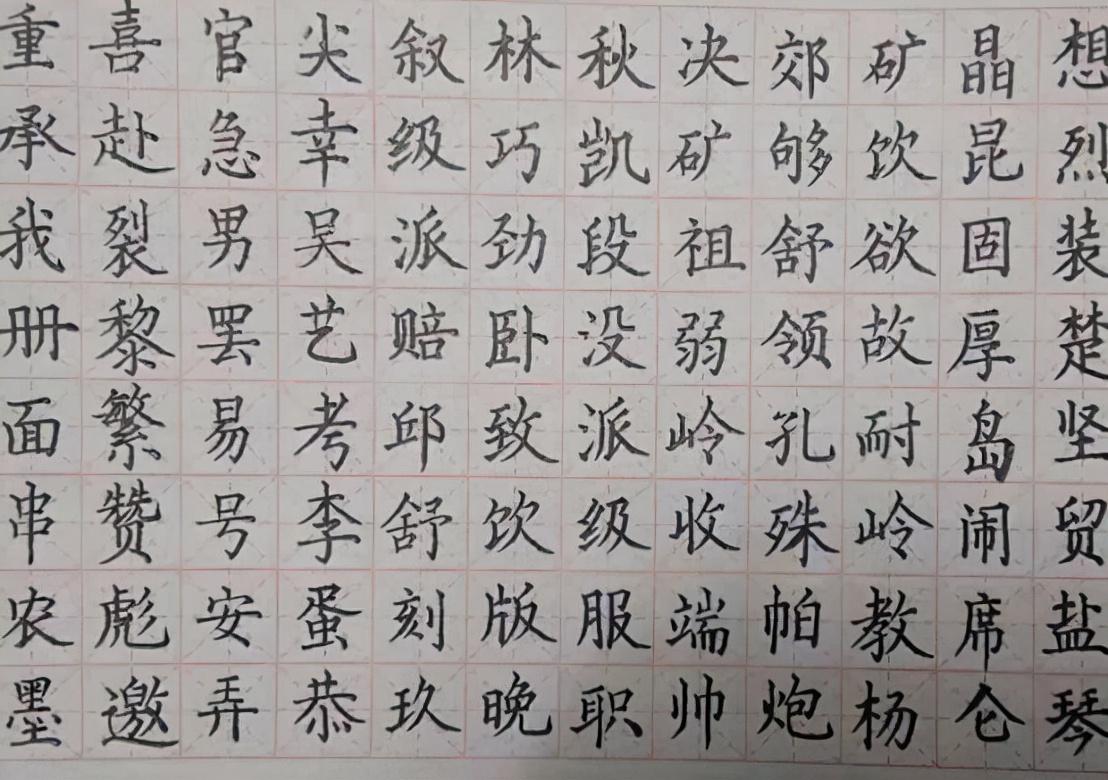 重喜官尖叙林秋决郊矿晶想
承赴急幸级巧凯矿够饮昆烈
我裂男吴派劲段祖舒欲固装
册黎罢艺赔卧没弱领故厚楚
面繁易考邱致派岭孔耐岛坚
串赞号李舒饮级收殊岭闹贸
农彪安蛋刻版服端帕教席盐
墨邀弄恭玖晚职帅炮杨仑琴